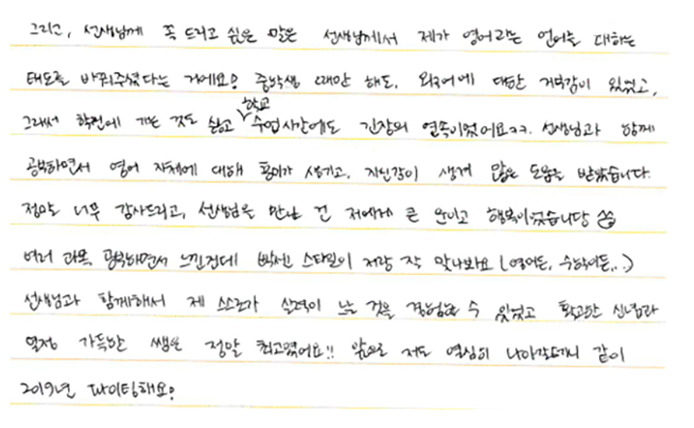 그리고, 선생님께 꼭 드리고 싶은 말은 선생님께서 제가 영어라는 언어를 대하는
태도를 바꿔주셨다는 거예요! 중학생 때만 해도, 외국어에 대한 거부감이 있었고,
그래서 학원에 가는 것도 싫고 학교 수업시간에도 긴장의 연속이었어요ㅋㅋ. 선생님과 함께
공부하면서 영어 자체에 대해 흥미가 생기고, 자신감이 생겨 많은 도움을 받았습니다.
정말로 너무 감사드리고, 선생님을 만난 건 저에게 큰 운이고 행복이었습니당
여러 과목 공부하면서 느낀건데 빡센 스타일이 저랑 잘 맞나봐요 (영어든, 수학이든,..)
선생님과 함께해서 제 스스로가 실력이 느는 것을 경험할 수 있었고 확고한 신념과
열정 가득한 쌤은 정말 최고였어요!! 앞으로 저도 열심히 나아갈테니 같이
2019년 파이팅해요!